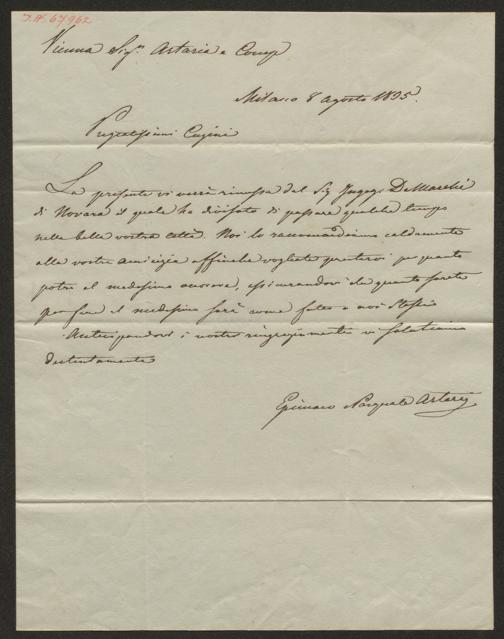 I.N. 67962
Vienna Sig.ri Artaria e Comp
Milano 8 agosto 1835.
Pregiatissimi Cugini
La presente vi verrà rimessa dal Sig. DeMarchi
di Novara il quale ha divisato di passare qualche tempo
nella bella vostra città. Noi lo raccomandiamo caldamente
alla vostra amicizia affinchè vogliate prestarvi per quanto
potrà al medesimo occorere, assicurandovi che quanto farete
per il medesimo sarà come fatto a noi stessi
Anticipandovi i nostri ringraziamenti vi salutiamo
distintamente
Epimaco Pasquale Artaria